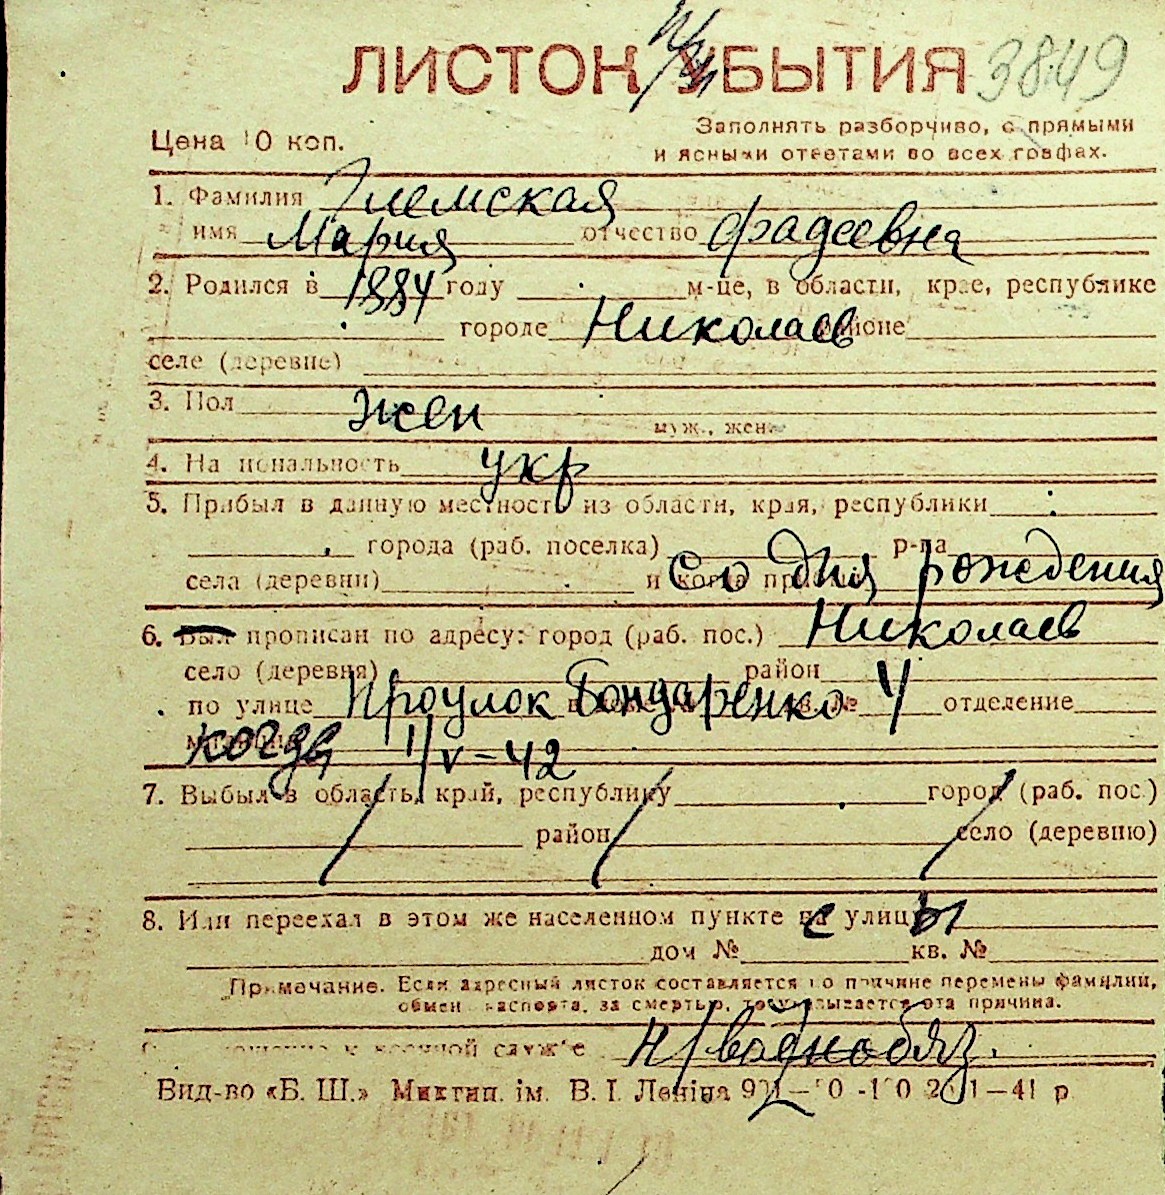 ЛИСТОК УБЫТИЯ 3849
Цена 10 коп.
Заполнять разборчиво, с прямыми
и ясными ответами во всех графах.
1. Фамилия
имя Мария отчество Фадеевна
2. Родился в 1884 году м-це, в области, крае, республике
городе Николаев районе
селе (деревне)
3. Пол жен
муж., жен.
4. Национальность укр
5. Прибыл в данную местность из области, края, республики
города (раб. поселка) р-на
села (деревни) и когда прибыл со дня рождения
6. Был прописан по адресу: город (раб. пос.) Николаев
село (деревня) район
по улице Проулок Бондаренко № 4 отделение
милиции когда 1/V-42
7. Выбыл в область, край, республику город (раб. пос.)
район село (деревню)
8. Или переехал в этом же населенном пункте с улицы
дом № кв. №
Примечание. Если адресный листок составляется по причине перемены фамилии,
обмен паспорта, за смертью, то указывается эта причина.
отношение к военной службе н/военнообяз.
Вид-во «Б. Ш.» Миктип. ім. В. І. Леніна